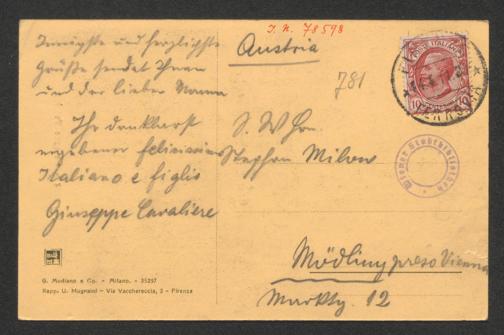 I. N. 78598
Innigste und herzlichste
Grüße sendet Ihnen
und der lieben Mama
Ihr dankbarst
ergebener
Italiano e figlio
Giuseppe Cavaliere
Austria
781
S. W Hrn.
Stephan Milow
Mödling preso Vienna
Markty. 12
POSTE ITALIANE
10
Wiener Stadtbibliothek
G. Modiano e Co. - Milano. - 35257
Rapp. U. Mugnaini - Via Vacchereccia, 3 - Firenze